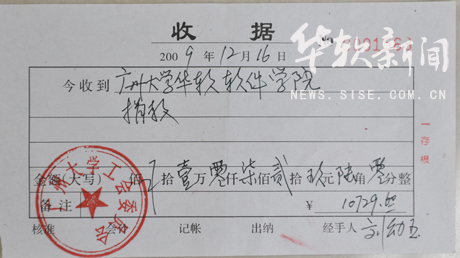 收据
2009年12月16日
华软新闻
NEWS.SISE.COM.CN
今收到广州大学华软软件学院
捐款
金额(大写) 佰 拾壹万零仟柒佰贰拾玖元陆角零分整
备注 ¥ 10729.60
核准 会计 记帐 出纳 经手人
一存根
广州大学工会委员会